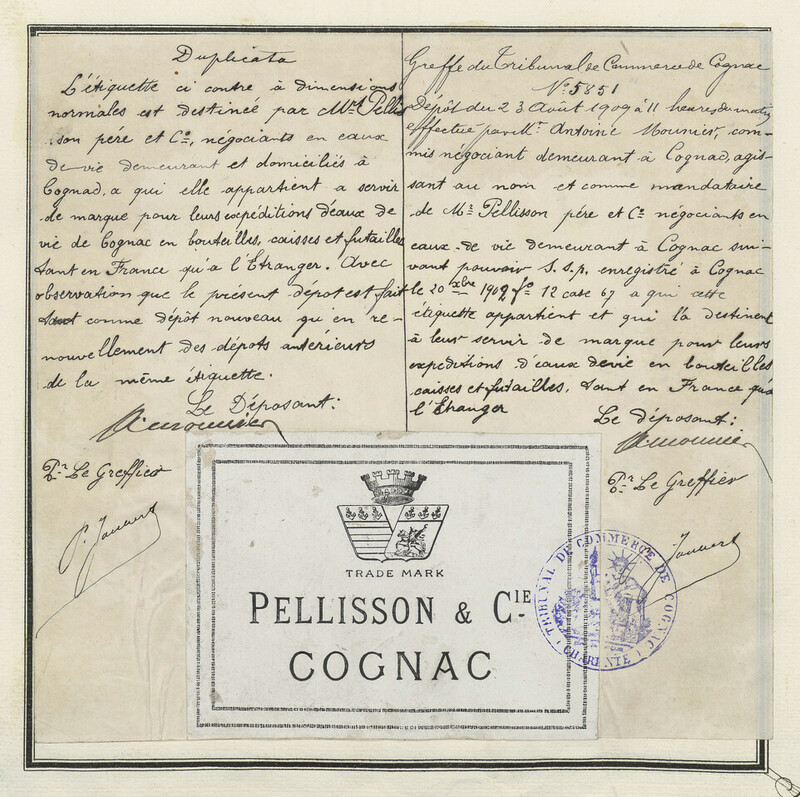 Duplicata
L'étiquette ci contre à dimensions
normales est destinée par Mrs Pellis
son père et Co, négociants en eaux
de vie demeurant et domiciliés à
Cognac, a qui elle appartient a servir
de marque pour leurs expéditions d'eaux de
vie de Cognac en bouteilles, caisses et futailles
tant en France qu'a l'Etranger. Avec
observation que le présent dépot est fait
tant comme dépôt nouveau qu'en re-
nouvellement des dépots antérieurs
de la même étiquette.
Le Déposant:
A. Mounier
Pr Le Greffier
Greffe du Tribunal de Commerce de Cognac
No 5851
Dépôt du 23 Août 1909 à 11 heures du matin
effectué par Mr Antoine Mounier, com-
mis négociant demeurant à Cognac, agis-
sant au nom et comme mandataire
de Mrs Pellisson père et Co négociants en
eaux-de vie demeurant à Cognac sui-
vant pouvoir S.s.p, enregistré à Cognac
le 20 xbre 1902 fo 12 case 67 a qui cette
étiquette appartient et qui l'a destinent
à leur servir de marque pour leurs
expéditions d'eaux de vie en bouteilles
caisses et futailles, tant en France qu'à
l'Etranger
Le déposant:
A. Mounier
Pr Le Greffier
TRADE MARK
PELLISSON & CIE
COGNAC
TRIBUNAL DE COMMERCE DE COGNAC
(CHARENTE)